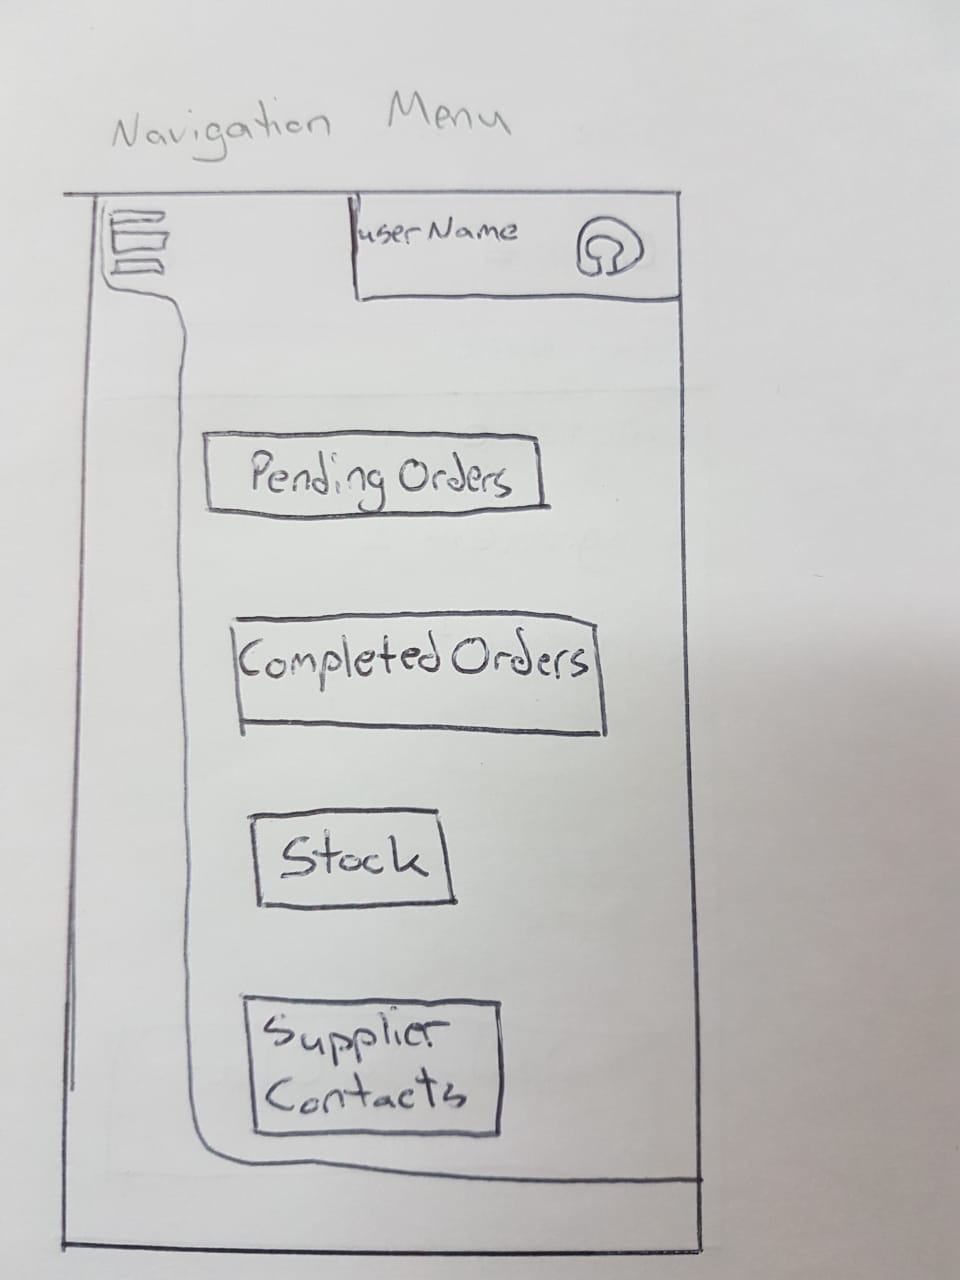 Navigation Menu
userName
Pending Orders
Completed Orders
Stock
Supplier
Contacts